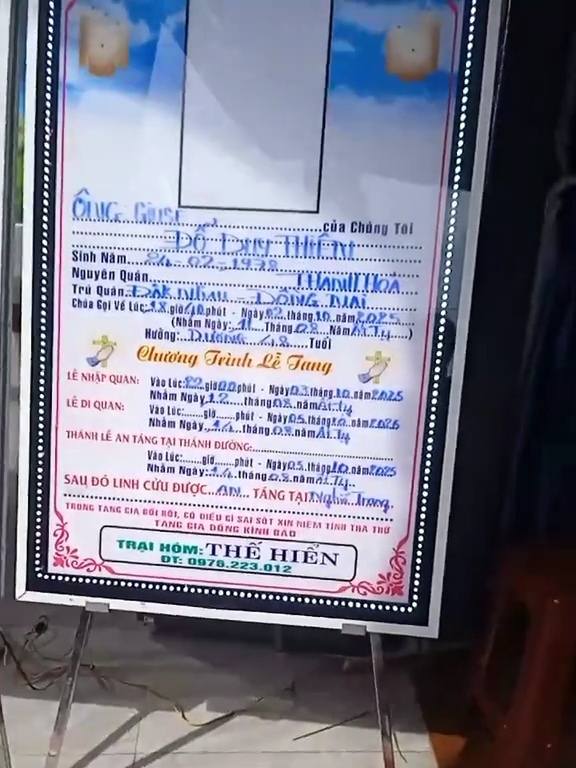 ÔNG: GIUSE.....................của Chúng Tôi
ĐỖ DUY THIÊN
Sinh Năm....24-02-1978
Nguyên Quán..................THANH HOÁ
Trú Quán. ĐĂK NHAU - ĐỒNG NAI
Chúa Gọi Về Lúc:18.giờ40phút - Ngày02.tháng.10..năm2025
(Nhằm Ngày:.11...Tháng.08..Năm Ất.Tỵ....)
Hưởng:..DƯƠNG..48...Tuổi
Chương Trình Lễ Tang
LỄ NHẬP QUAN: Vào Lúc:22.giờ00phút - Ngày03.tháng.10.năm2025
Nhằm Ngày..12.....tháng.08.năm Ất.Tỵ
LỄ DI QUAN: Vào Lúc:......giờ.......phút - Ngày05.tháng.10.năm2025
Nhằm Ngày:.14...tháng.08.năm Ất.Tỵ
THÁNH LỄ AN TÁNG TẠI THÁNH ĐƯỜNG:
Vào Lúc:......giờ......phút - Ngày05.tháng.10.năm2025
Nhằm Ngày:.14.tháng.08.năm Ất.Tỵ..
SAU ĐÓ LINH CỬU ĐƯỢC...AN... TÁNG TẠI Nghĩa trang.
TRONG TANG GIA BỐI RỐI, CÓ ĐIỀU GÌ SAI SÓT XIN NIỆM TÌNH THA THỨ
TANG GIA ĐỒNG KÍNH BÁO
TRẠI HÒM: THẾ HIỂN
ĐT: 0976.223.012